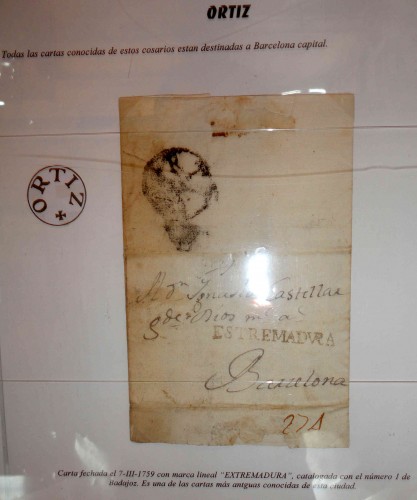 ORTIZ
Todas las cartas conocidas de estos cosarios estan destinadas a Barcelona capital.
ORTIZ
Castellar
ESTREMADVRA
Barcelona
Carta fechada el 7-III-1759 con marca lineal "EXTREMADURA", catalogada con el número 1 de
Badajoz. Es una de las cartas más antguas conocidas de esta ciudad.